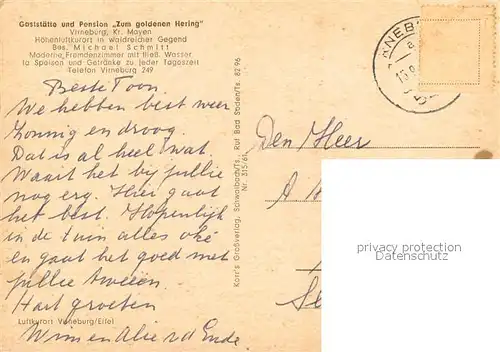 Gaststätte und Pension „Zum goldenen Hering"
Virneburg, Kr. Mayen
Höhenluftkurort in waldreicher Gegend
Bes. Michael Schmitt
Moderne Fremdenzimmer mit fließ. Wasser
la Speisen und Getränke zu jeder Tageszeit
Telefon Virneburg 249
Beste Toon.
We hebben best weer
Zonnig en droog.
Dat is al heel wat.
Waait het bij jullie
nog erg. Hier gaat
het best. Hopenlijk
in de tuin alles oké
en gaat het goed met
jullie tweeën.
Hart groeten
Wim en Alie v d Ende
Luftkurort Virneburg/Eifel
Korr's Großverlag, Schwalbach/Ts. Ruf Bad Soden/Ts. 8296
Nr. 315/61
Den Heer
A
privacy protection
Datenschutz